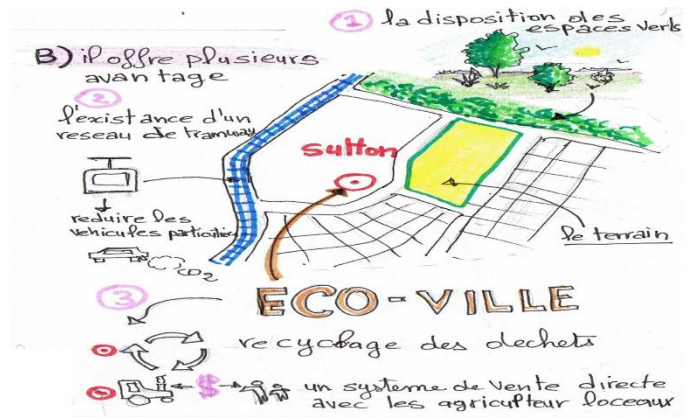 ① la disposition des
espaces verts
B) il offre plusieurs
avantage
②
l'existance d'un
reseau de tramway
reduire les
vehicules particuliers
CO2
Sutton
le terrain
③
ECO-VILLE
recyclage des dechets
$
un systeme de vente directe
avec les agriculteur loceaux